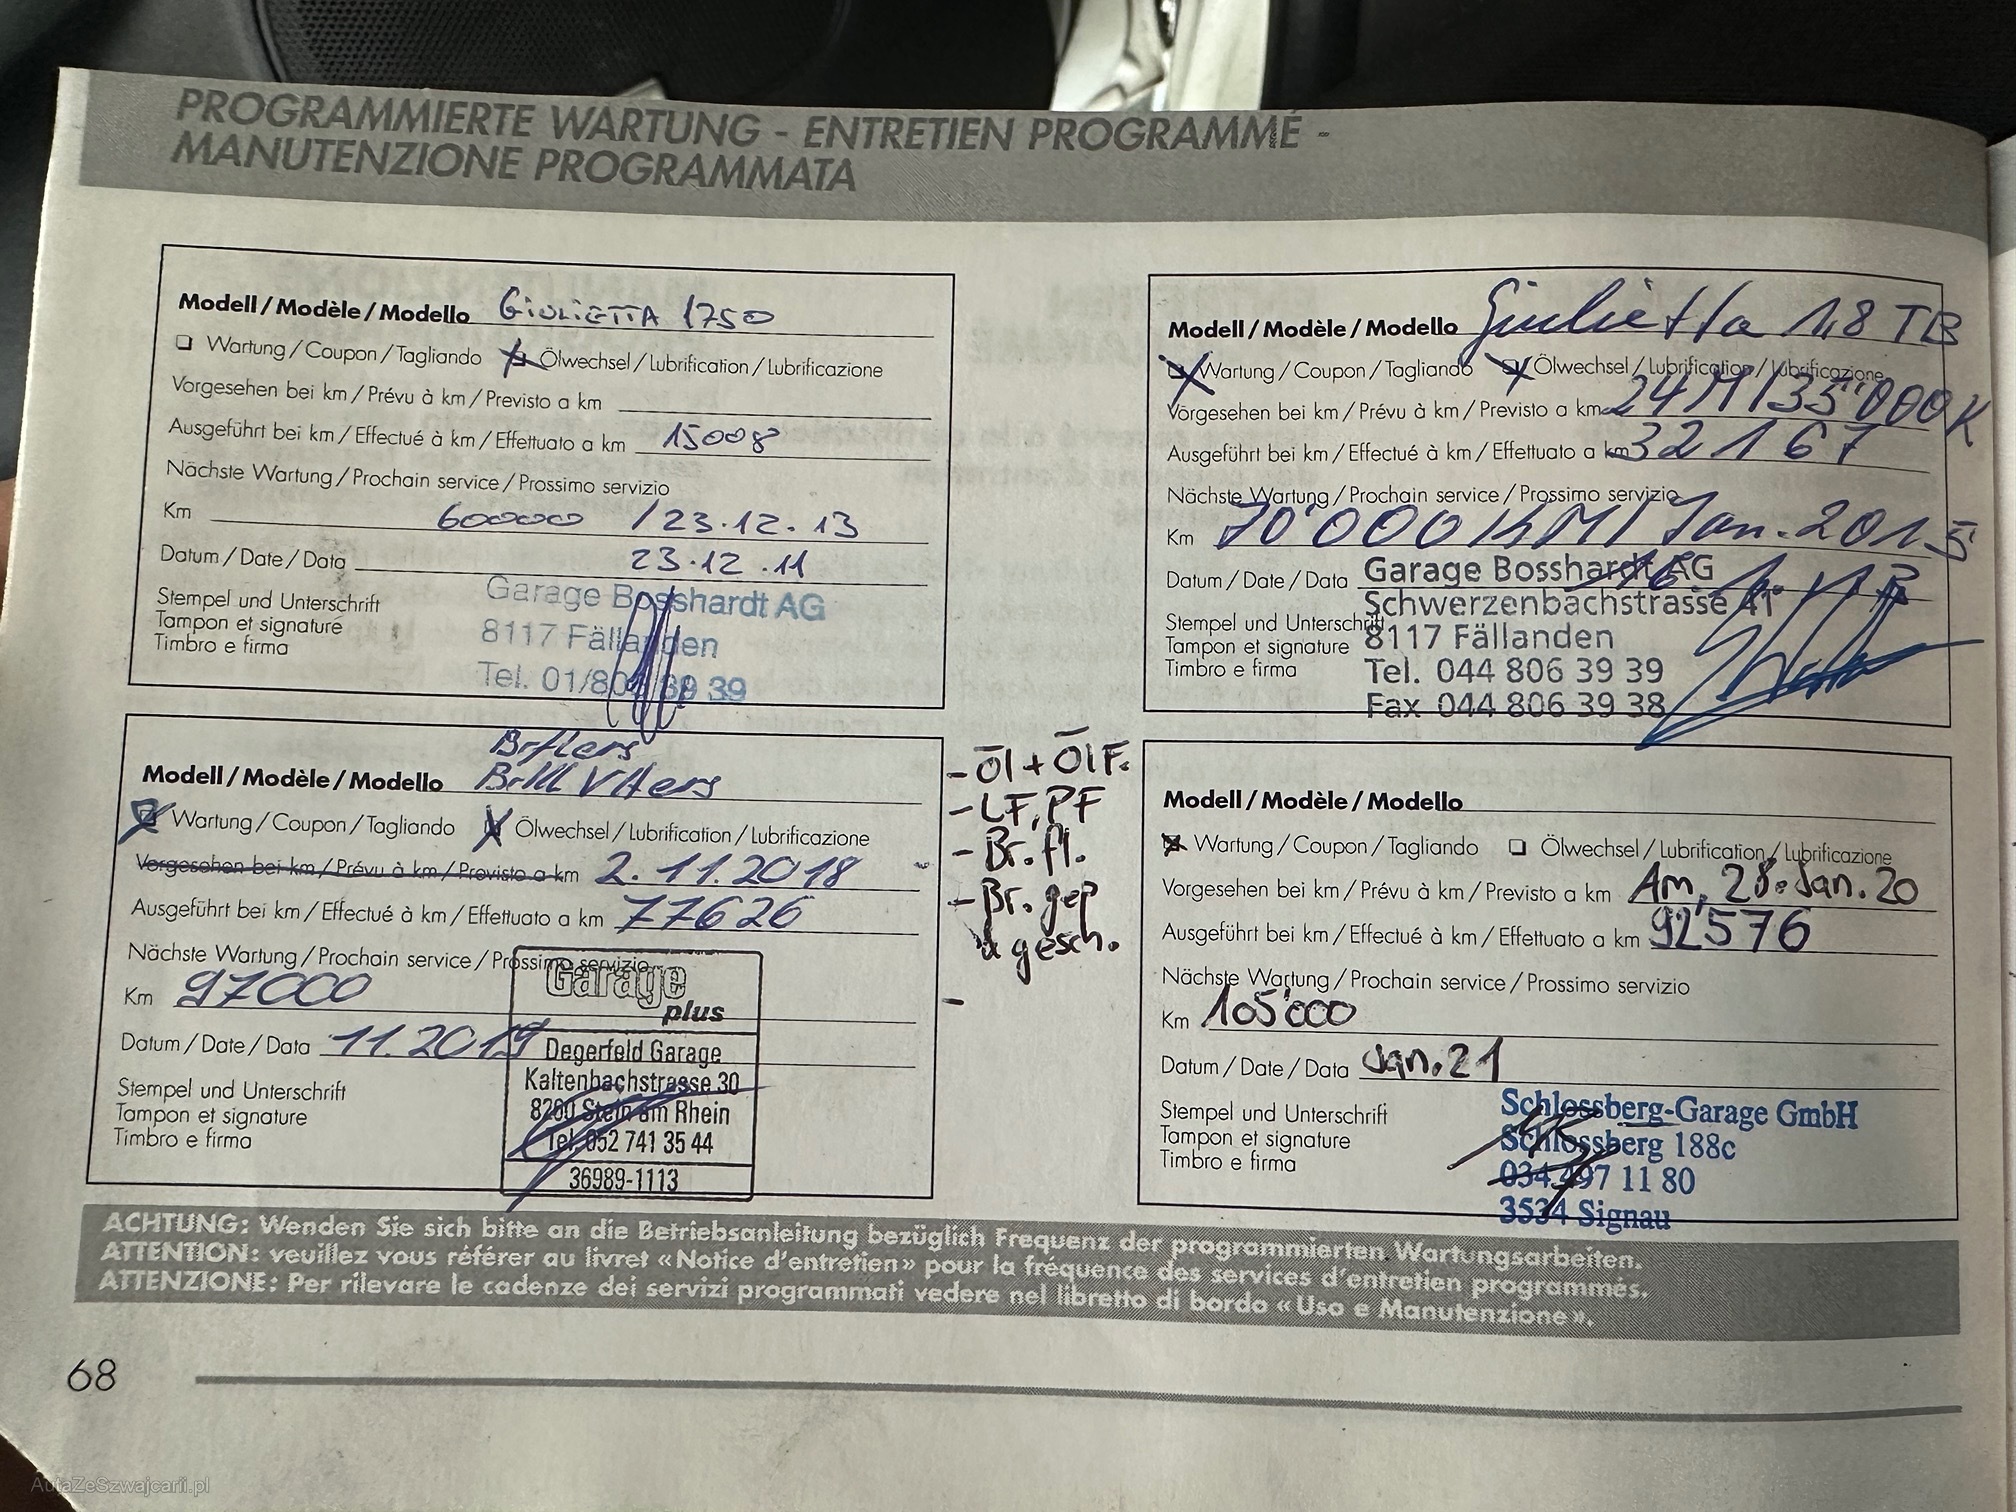 PROGRAMMIERTE WARTUNG - ENTRETIEN PROGRAMMÉ -
MANUTENZIONE PROGRAMMATA
Modell / Modèle / Modello GIULIETTA 1750
Wartung / Coupon / Tagliando Ölwechsel / Lubrification / Lubrificazione
Vorgesehen bei km / Prévu à km / Previsto a km
Ausgeführt bei km / Effectué à km / Effettuato a km 15008
Nächste Wartung / Prochain service / Prossimo servizio
Km 600000 / 23.12.13
Datum / Date / Data 23.12.11
Stempel und Unterschrift
Tampon et signature
Timbro e firma
Garage Bosshardt AG
8117 Fällanden
Tel. 01/80 39 39
Modell / Modèle / Modello Giulietta 1,8 TB
Wartung / Coupon / Tagliando Ölwechsel / Lubrification / Lubrificazione
Vorgesehen bei km / Prévu à km / Previsto a km 24M/35'000K
Ausgeführt bei km / Effectué à km / Effettuato a km 32167
Nächste Wartung / Prochain service / Prossimo servizio
Km 70'000 KM / Jan. 2015
Datum / Date / Data
Stempel und Unterschrift
Tampon et signature
Timbro e firma
Garage Bosshardt AG
Schwerzenbachstrasse 41
8117 Fällanden
Tel. 044 806 39 39
Fax 044 806 39 38
Modell / Modèle / Modello
Wartung / Coupon / Tagliando Ölwechsel / Lubrification / Lubrificazione
Vorgesehen bei km / Prévu à km / Previsto a km 2.11.2018
Ausgeführt bei km / Effectué à km / Effettuato a km 77626
Nächste Wartung / Prochain service / Prossimo servizio
Km 97000
Datum / Date / Data 11.2019
Stempel und Unterschrift
Tampon et signature
Timbro e firma
Garage
plus
Degerfeld Garage
Kaltenbachstrasse 30
8260 Stein am Rhein
Tel. 052 741 35 44
36989-1113
- Öl + ÖlF.
- LF, PF
- Br. fl.
- Br. gep
u gesch.
-
Modell / Modèle / Modello
Wartung / Coupon / Tagliando Ölwechsel / Lubrification / Lubrificazione
Vorgesehen bei km / Prévu à km / Previsto a km Am, 28. Jan. 20
Ausgeführt bei km / Effectué à km / Effettuato a km 92'576
Nächste Wartung / Prochain service / Prossimo servizio
Km 105'000
Datum / Date / Data Jan. 21
Stempel und Unterschrift
Tampon et signature
Timbro e firma
Schlossberg-Garage GmbH
Schlossberg 188c
034 497 11 80
3534 Signau
ACHTUNG: Wenden Sie sich bitte an die Betriebsanleitung bezüglich Frequenz der programmierten Wartungsarbeiten.
ATTENTION: veuillez vous référer au livret «Notice d'entretien» pour la fréquence des services d'entretien programmés.
ATTENZIONE: Per rilevare le cadenze dei servizi programmati vedere nel libretto di bordo «Uso e Manutenzione».
68
AutaZeSzwajcarii.pl